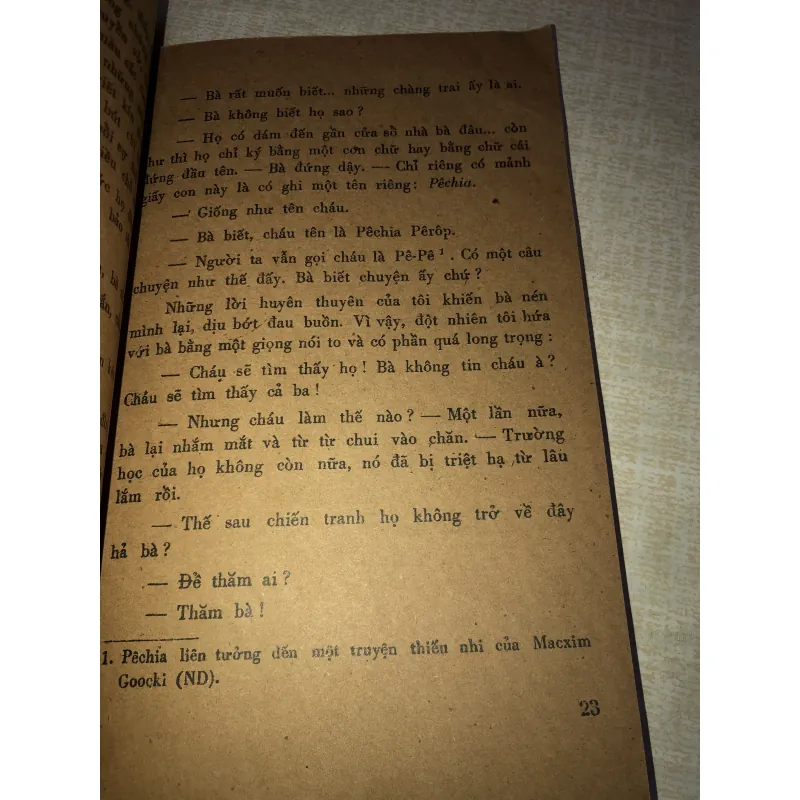 — Bà rất muốn biết... những chàng trai ấy là ai.
— Bà không biết họ sao?
— Họ có dám đến gần cửa sổ nhà bà đâu... còn
thư thì họ chỉ ký bằng một con chữ hay bằng chữ cái
đứng đầu tên. — Bà đứng dậy. — Chỉ riêng có mảnh
giấy con này là có ghi một tên riêng: Pêchia.
— Giống như tên cháu.
— Bà biết, cháu tên là Pêchia Pêrôp.
— Người ta vẫn gọi cháu là Pê-Pê ¹. Có một câu
chuyện như thế đấy. Bà biết chuyện ấy chứ?
Những lời huyên thuyên của tôi khiến bà nén
mình lại, dịu bớt đau buồn. Vì vậy, đột nhiên tôi hứa
với bà bằng một giọng nói to và có phần quá long trọng:
— Cháu sẽ tìm thấy họ! Bà không tin cháu à?
Cháu sẽ tìm thấy cả ba!
— Nhưng cháu làm thế nào? — Một lần nữa,
bà lại nhắm mắt và từ từ chui vào chăn. — Trường
học của họ không còn nữa, nó đã bị triệt hạ từ lâu
lắm rồi.
— Thế sau chiến tranh họ không trở về đây
hả bà?
— Để thăm ai?
— Thăm bà!
1. Pêchia liên tưởng đến một truyện thiếu nhi của Macxim
Goocki (ND).
23